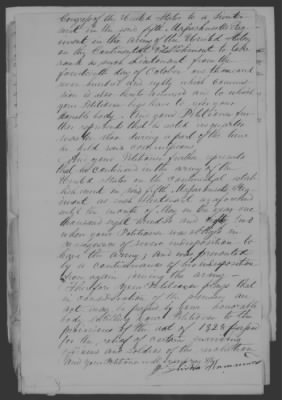 Congress of the United States to a Lieuten
ant in the said fifth Massachusetts Regi
ment in the army of the United States
on the Continental Establishment to take
rank as such Lieutenant from the
fourteenth day of October one thousand
seven hundred and eighty which commis
sion is also here annexed and to which
your Petitioner begs leave to refer your
honorable body. And your Petitioner fur
ther represents that he acted as quarter
master also during a part of the time
in said commissions
And your Petitioner further represents
that he continued in the army of the
United States on the Continental establish
ment in said fifth Massachusetts Reg
iment as such Lieutenant as aforesaid
until the month of May in the year one
thousand Hundred and Eighty two
when your Petitioner was obliged in
consequence of severe indisposition to
leave the army and was prevented
by a continuance of his indisposition
from again joining the army
Therefore your Petitioner prays that
in consideration of the premises an
act may be passed by your honorable
body entitling your Petitioner to the
provisions of the act of 1828
for the relief of certain surviving
officers and soldiers of the revolution
And your Petitioner will ever pray